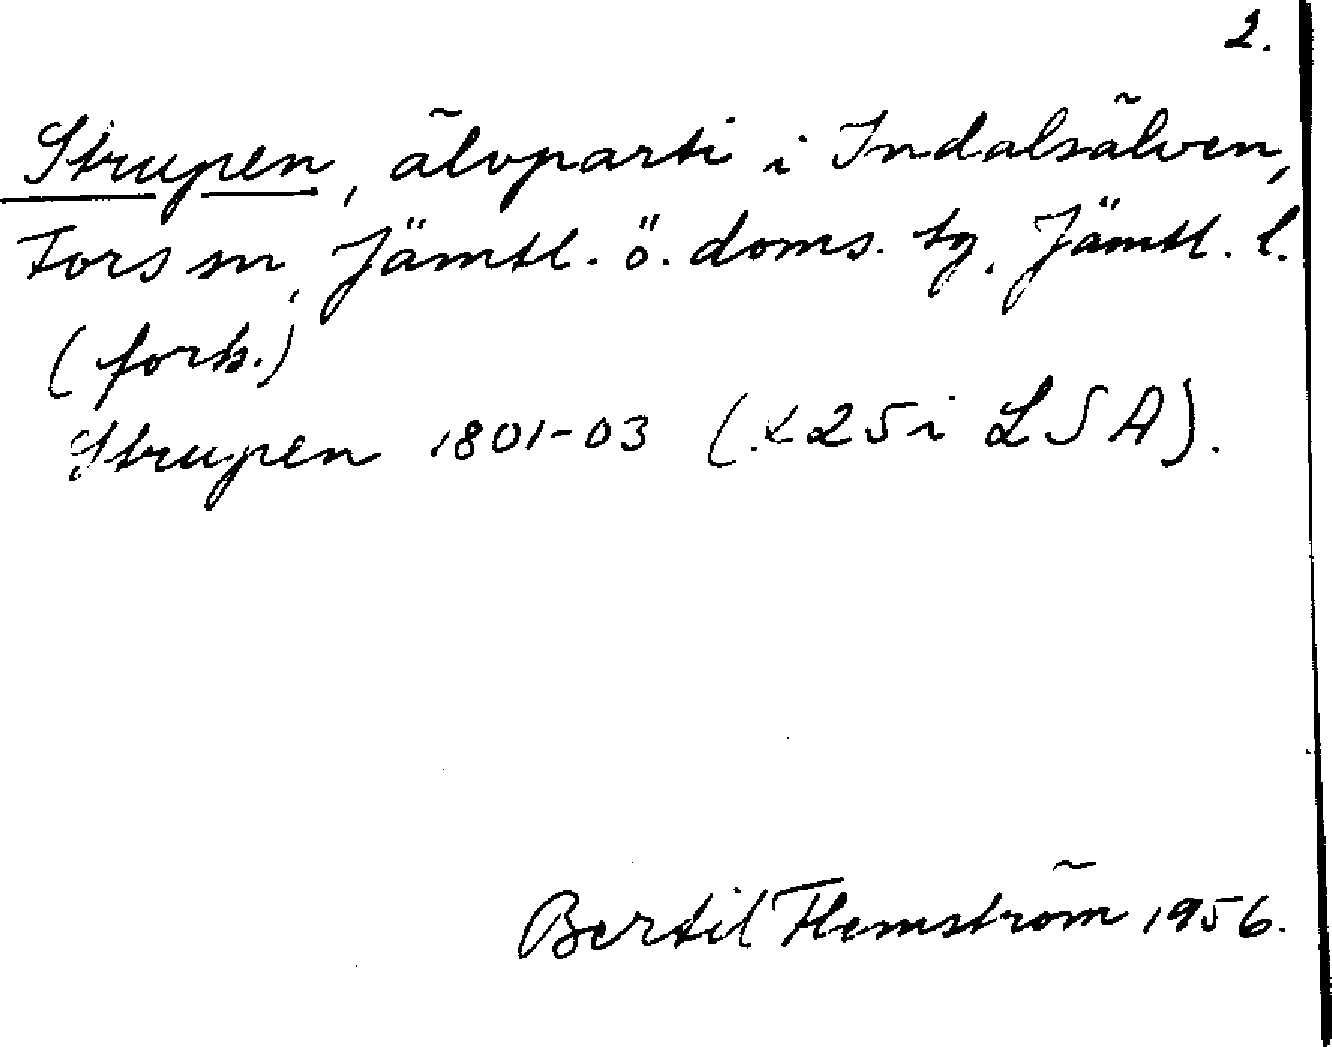 2.
Strupen, älvparti i Indalsälven,
Fors sn, Jämtl. ö. doms. tg. Jämtl. l.
(forts.)
Strupen 1801-03 (. 25 i LSA).
Bertil Flemström 1956.